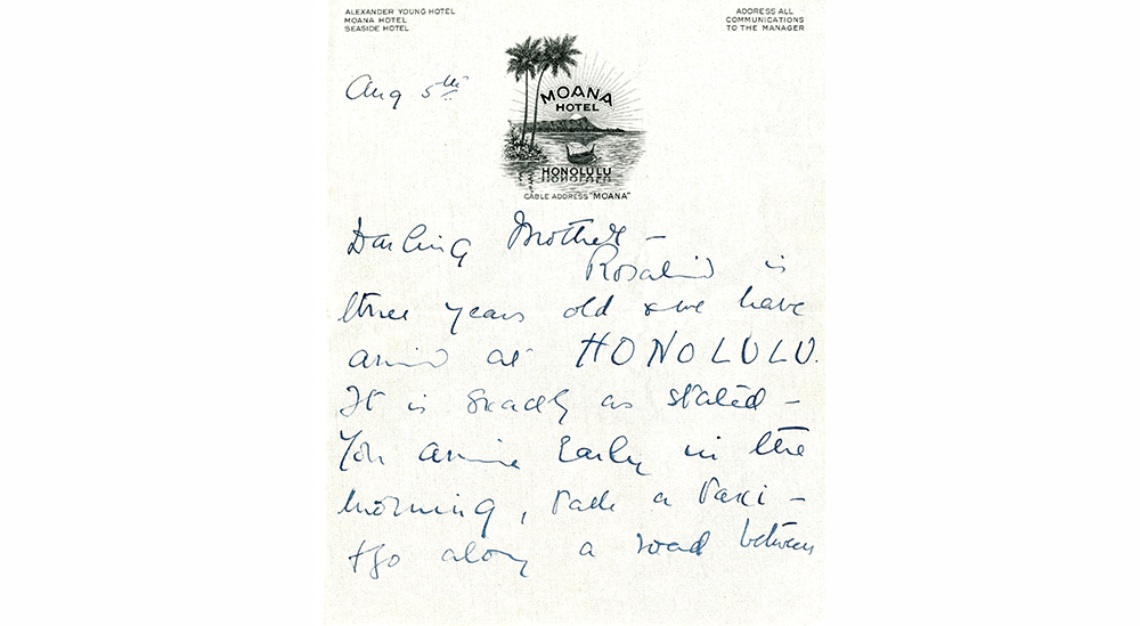 ALEXANDER YOUNG HOTEL
MOANA HOTEL
SEASIDE HOTEL
ADDRESS ALL
COMMUNICATIONS
TO THE MANAGER
Aug 5th
MOANA
HOTEL
HONOLULU
CABLE ADDRESS "MOANA"
Darling Mother –
Rosalind is
three years old & we have
arrived at HONOLULU.
It is exactly as stated –
You arrive Early in the
morning, take a taxi –
& go along a road between